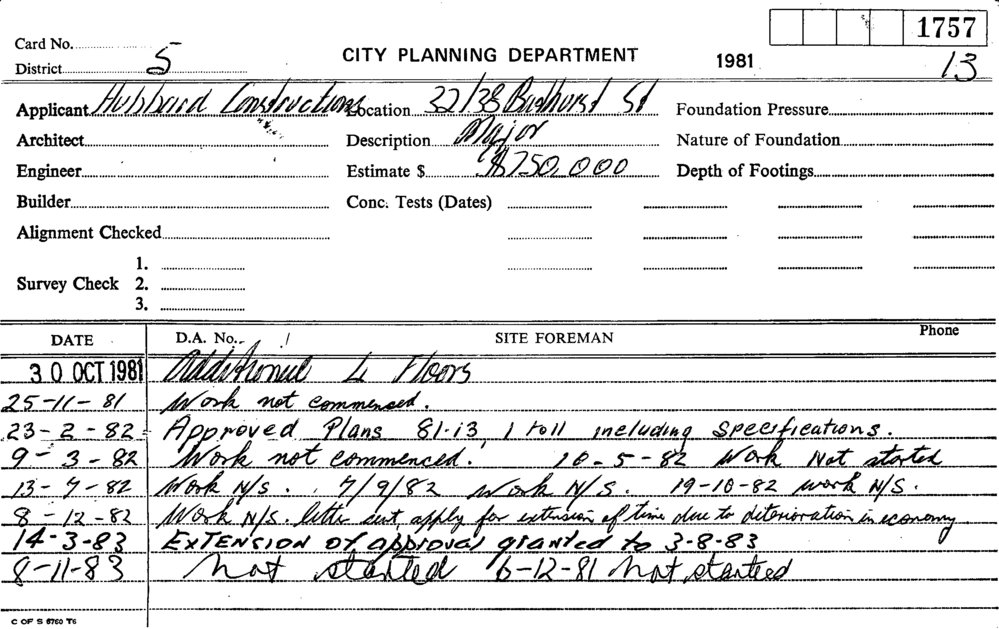 1757
Card No.
District 5
CITY PLANNING DEPARTMENT
1981
13
Applicant Hubbard Constructions
Location 32/38 Bathurst St
Foundation Pressure
Architect
Description Major
Nature of Foundation
Engineer
Estimate $ $750,000
Depth of Footings
Builder
Conc. Tests (Dates)
Alignment Checked
Survey Check
1.
2.
3.
DATE D.A. No. SITE FOREMAN Phone
30 OCT 1981 Additional 4 Floors
25-11-81 Work not commenced.
23-2-82 Approved Plans 81-13, 1 to 11 including specifications.
9-3-82 Work not commenced. 10-5-82 Work Not started
13-7-82 Work N/S. 7/9/82 Work N/S. 19-10-82 work N/S.
8-12-82 Work N/S. letter sent, apply for extension of time due to deterioration in economy
14-3-83 EXTENSION of approval granted to 3-8-83
8-11-83 Not started 6-12-81 Not started
C OF S 6760 T6